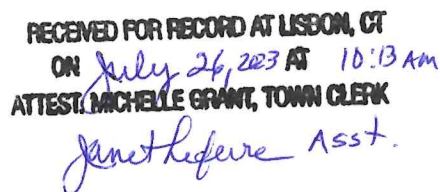 RECEIVED FOR RECORD AT LISBON, CT
ON July 26, 2023 AT 10:13 AM
ATTEST: MICHELLE GRANT, TOWN CLERK
Janet Lefevre Asst.